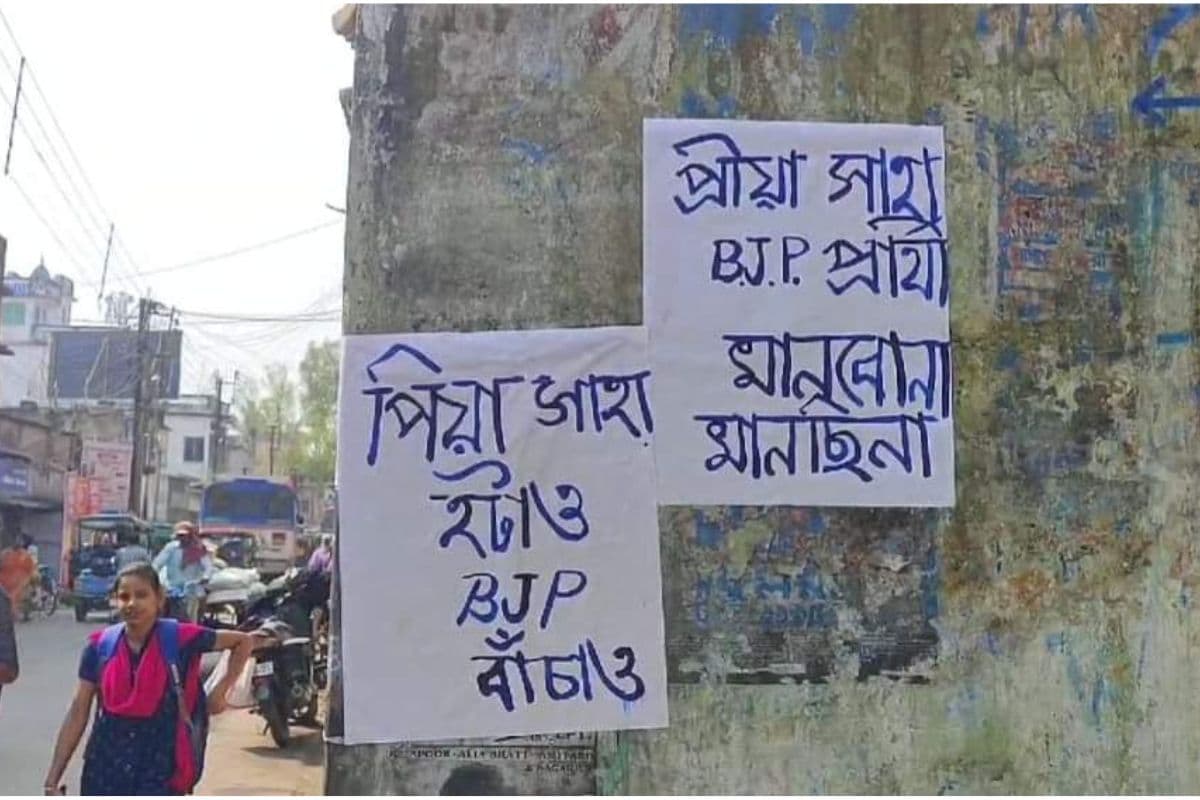 প্রীয়া সাহা
B.J.P. প্রার্থী
মানবোনা
মানছিনা
পিয়া সাহা
হটাও
BJP
বাঁচাও